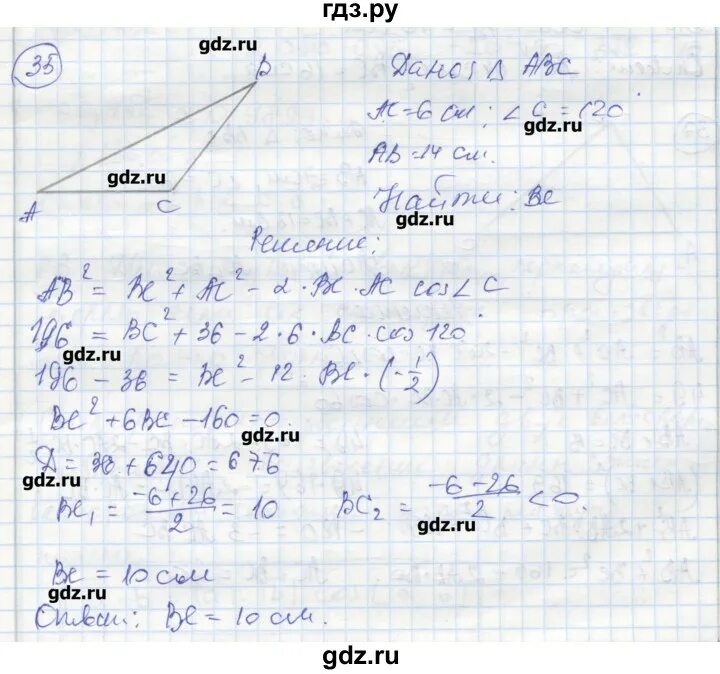 гдз.ру
gdz.ru
35
B
Дано: Δ ABC
AC = 6 см; ∠ C = 120°
gdz.ru
AB = 14 см.
gdz.ru
A
C
Найти: BC
gdz.ru
Решение:
AB² = BC² + AC² - 2 · BC · AC cos∠ C
196 = BC² + 36 - 2 · 6 · BC · cos 120°
gdz.ru
gdz.ru
196 - 36 = BC² - 12 · BC · (-1/2)
BC² + 6BC - 160 = 0.
gdz.ru
D = 36 + 640 = 676
gdz.ru
BC₁ = (-6+26)/2 = 10
BC₂ = (-6-26)/2 < 0.
gdz.ru
gdz.ru
BC = 10 см
gdz.ru
gdz.ru
Ответ: BC = 10 см.
gdz.ru